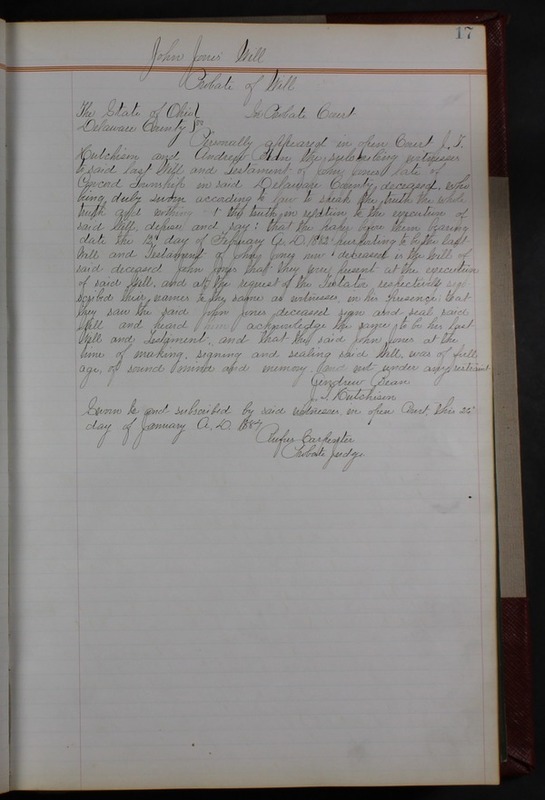 17
John Jones Will
Probate of Will
The State of Ohio } In Probate Court
Delaware County } ss
Personally appeared in open Court J. T.
Hutchisin and Andrew Dean the subscribing witnesses
to said last Will and Testament of John Jones late of
Concord Township in said Delaware County, deceased, who
being duly sworn according to law to speak the truth the whole
truth and nothing but the truth, in relation to the execution of
said Will, depose and say: that the paper before them bearing
date the 12th day of February A. D. 1882 purporting to be the last
Will and Testament of John Jones now deceased is the Will of
said deceased John Jones that they were present at the execution
of said Will, and at the request of the Testator respectively sub
scribed their names to the same as witnesses, in his presence that
they saw the said John Jones deceased sign and seal said
Will and heard him acknowledge the same to be his last
Will and Testament, and that the said John Jones at the
time of making, signing and sealing said Will, was of full
age, of sound mind and memory, and not under any restraint
Andrew Dean
J. T. Hutchisin
Sworn to and subscribed by said witnesses in open Court, this
day of January A. D.
Rufus Carpenter
Probate Judge